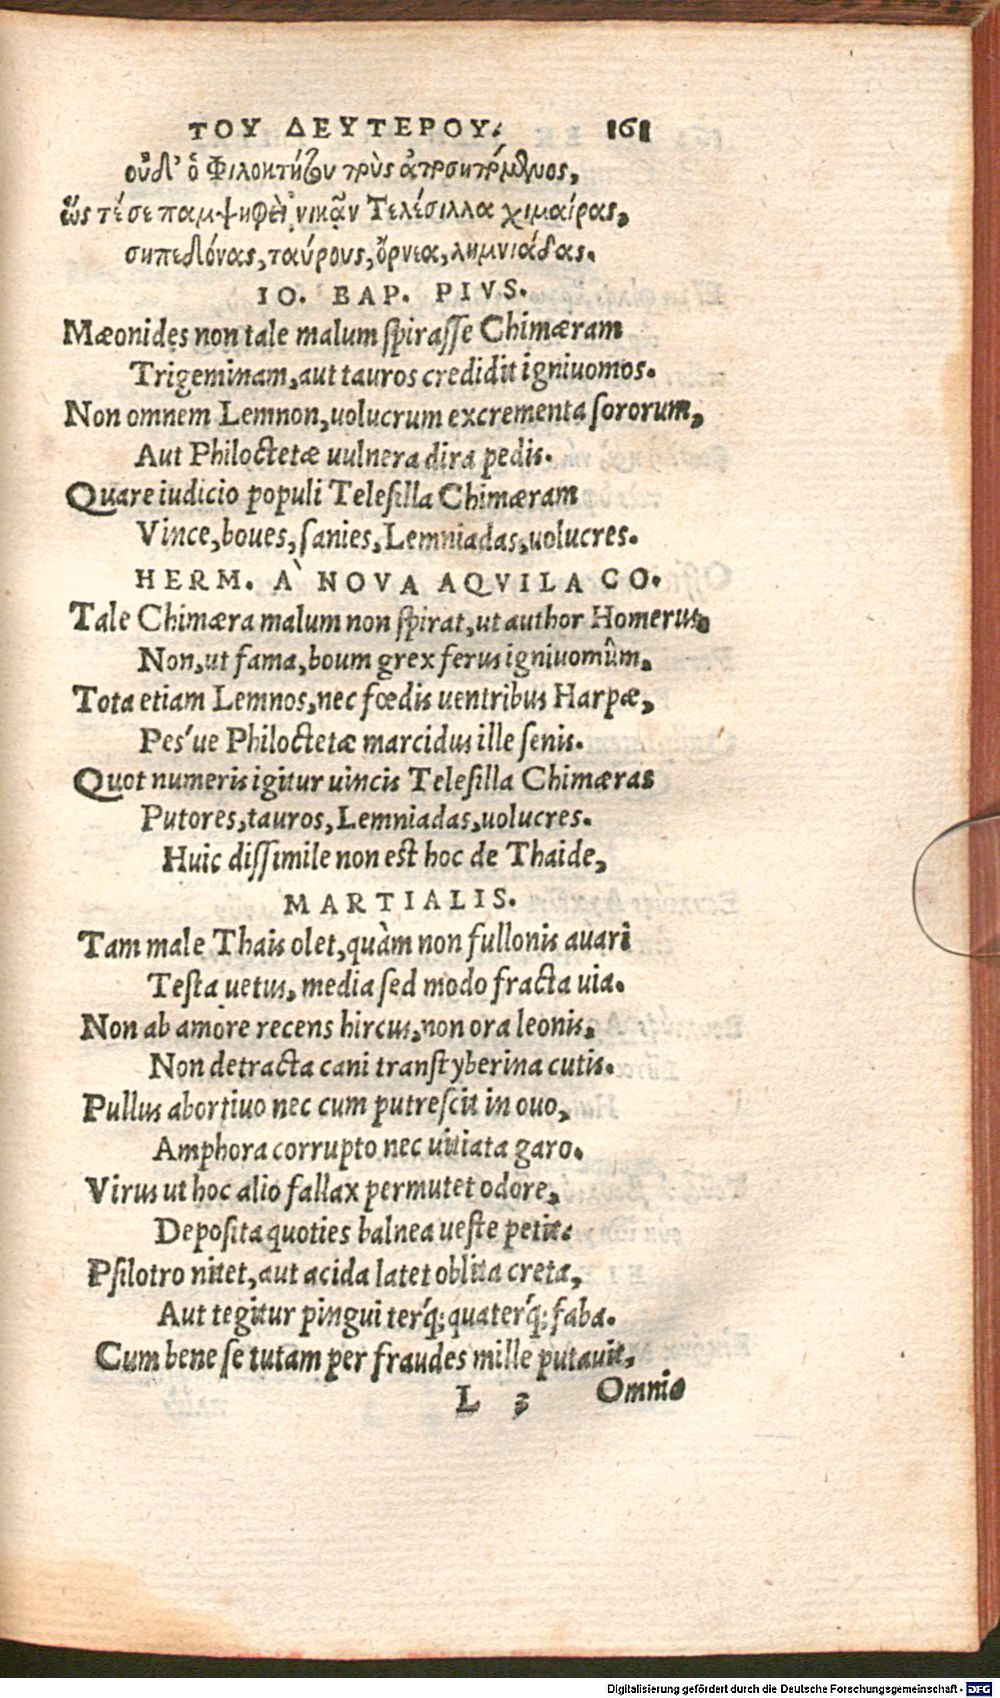 ΤΟΥ ΔΕΥΤΕΡΟΥ. 161
οὐδ' ὁ Φιλοκτήτου
ὥς τέ σε παμψηφεὶ νικᾷν Τελέσιλλα χιμαίρας,
σηπεδόνας, ταύρους, ὄρνεα, λημνιάδας.
IO. BAP. PIVS.
Mæonides non tale malum spirasse Chimæram
Trigeminam, aut tauros credidit igniuomos.
Non omnem Lemnon, uolucrum excrementa sororum,
Aut Philoctetæ uulnera dira pedis.
Quare iudicio populi Telesilla Chimæram
Vince, boues, sanies, Lemniadas, uolucres.
HERM. A` NOVA AQVILA CO.
Tale Chimæra malum non spirat, ut author Homerus.
Non, ut fama, boum grex ferus igniuomûm.
Tota etiam Lemnos, nec fœdis uentribus Harpæ,
Pes'ue Philoctetæ marcidus ille senis.
Quot numeris igitur uincis Telesilla Chimæras
Putores, tauros, Lemniadas, uolucres.
Huic dissimile non est hoc de Thaide,
MARTIALIS.
Tam male Thais olet, quàm non fullonis auari
Testa uetus, media sed modo fracta uia.
Non ab amore recens hircus, non ora leonis,
Non detracta cani transtyberina cutis.
Pullus abortiuo nec cum putrescit in ouo,
Amphora corrupto nec uitiata garo.
Virus ut hoc alio fallax permutet odore,
Deposita quoties balnea ueste petit:
Psilotro nitet, aut acida latet oblita creta,
Aut tegitur pingui ter'q; quater'q; faba.
Cum bene se tutam per fraudes mille putauit,
L 3 Omnia
Digitalisierung gefördert durch die Deutsche Forschungsgemeinschaft - DFG